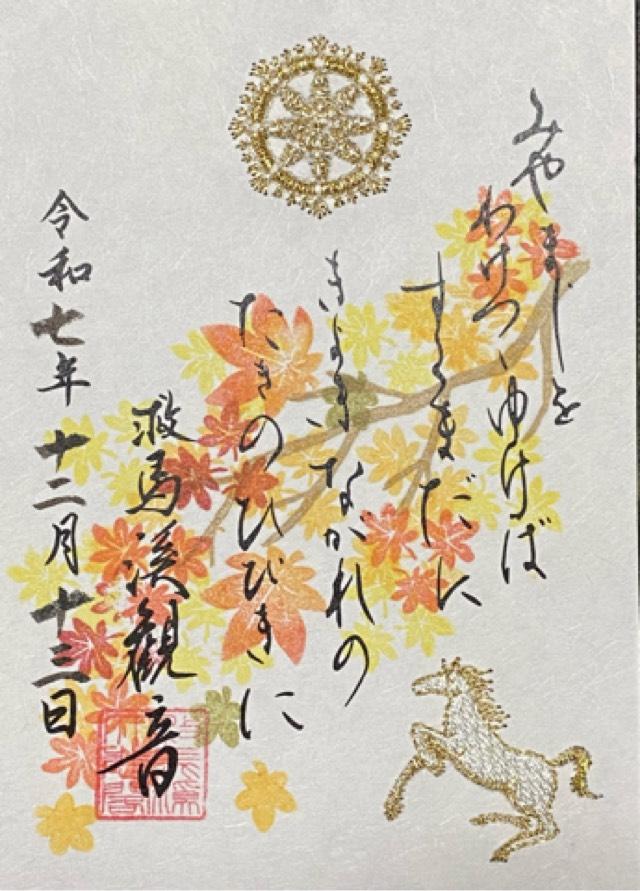 みやまじを
わけつゝゆけば
すゞまだに
きよきながれの
たきのひびきに
救馬溪觀音
令和七年十二月十三日